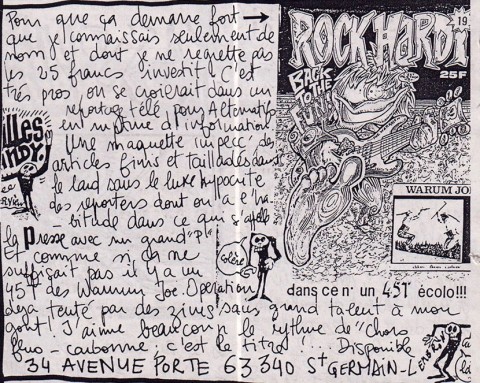 Pour que ça demarre fort →
que je connaissais seulement de
nom et dont je ne regrette pas
les 25 francs investit c'est
très pros, on se croierait dans un
reportage télé pour Alternatifs
en rupture d'information
Une maquette impecc, des
articles finis et tailladés dans
le lard sans le luxe hypocrite
des reporters dont on a l'ha
bitude dans ce qui s'appelle
la presse avec un grand "P"
Et comme si ça ne
suffisait pas il y a un
45T des Warum Joe. Operation
deja tenté par des zines sans grand talent à mon
gout! J'aime beaucoup le rythme de "chors
carbonne: c'est le titre! ... Disponible
34 AVENUE PORTE 63340 St GERMAIN-L
ROCK HARDI
19
25F
BACK
TO THE
FUTUR
WARUM JO
dans ce n° un 45T écolo!!!
Colère